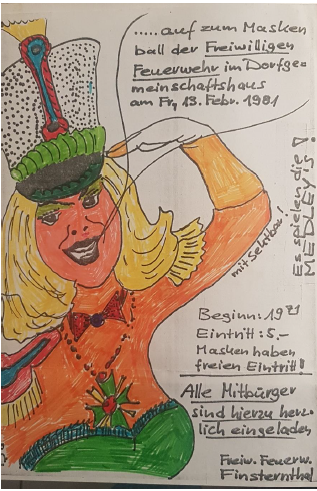 .....auf zum Masken
ball der Freiwilligen
Feuerwehr im Dorfge=
meinschaftshaus
am Fr, 13. Febr. 1981
Es spielen die
MEDLEY's!
mit Sektbar!
Beginn: 19 71
Eintritt: 5,-
Masken haben
freien Eintritt!
Alle Mitbürger
sind hierzu herz-
lich eingeladen
Freiw. Feuerw.
Finsternthal